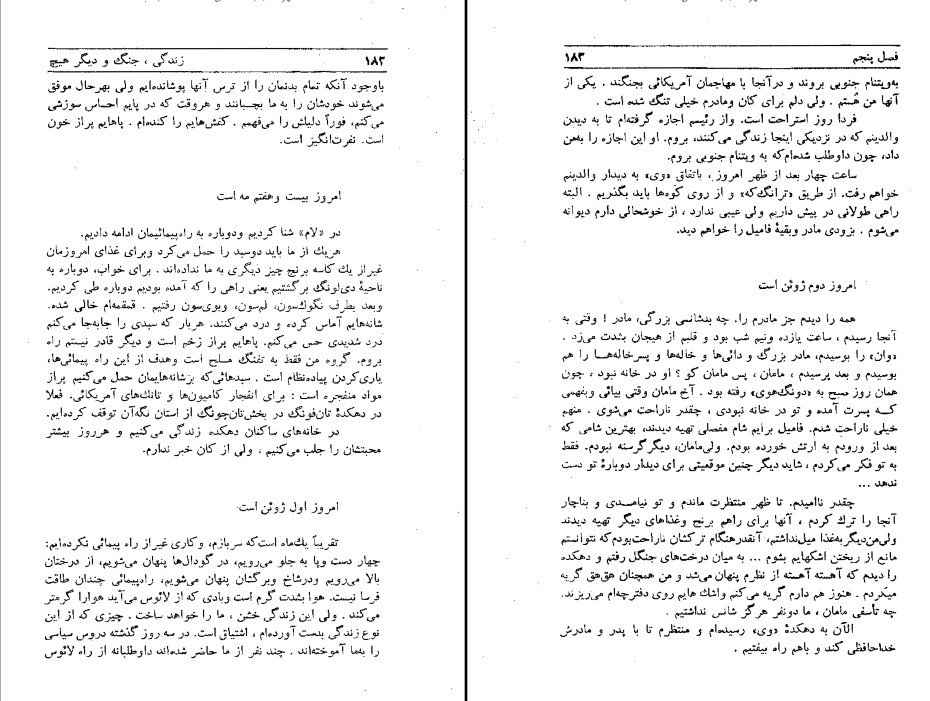 ۱۸۲ زندگی ، جنگ و دیگر هیچ
باوجود آنکه تمام بدنمان را از ترس آنها پوشانده‌ایم ولی بهرحال موفق
می‌شوند خودشان را به ما بچسبانند و هروقت که در پایم احساس سوزشی
می‌کنم، فوراً دلیلش را می‌فهمم . کفش‌هایم را کنده‌ام . پاهایم پراز خون
است. نفرت‌انگیز است.
امروز بیست وهفتم مه است
در «لام» شنا کردیم ودوباره به راه‌پیمائیمان ادامه دادیم.
هریك از ما باید دوسبد را حمل می‌کرد وبرای غذای امروزمان
غیراز یك کاسه برنج چیز دیگری به ما نداده‌اند . برای خواب، دوباره به
ناحیهٔ دی‌لونگ برگشتیم یعنی راهی را که آمده بودیم دوباره طی کردیم.
وبعد بطرف نگوك‌سون، لم‌سون، وبوی‌سون رفتیم . قمقمه‌ام خالی شده.
شانه‌هایم آماس کرده و درد می‌کنند. هربار که سبدی را جابه‌جا می‌کنم
درد شدیدی حس می‌کنم. پاهایم پراز زخم است و دیگر قادر نیستم راه
بروم. گروه من فقط به تفنگ مسلح است وهدف از این راه پیمائی‌ها،
یاری‌کردن پیاده‌نظام است . سبدهائی‌که برشانه‌هایمان حمل می‌کنیم پراز
مواد منفجره است : برای انفجار کامیون‌ها و تانك‌های آمریکائی. فعلا
در دهکدهٔ تان‌فونگ در بخش‌تان‌چونگ از استان نگه‌آن توقف کرده‌ایم.
در خانه‌های ساکنان دهکده زندگی می‌کنیم و هرروز بیشتر
محبتشان را جلب می‌کنیم ، ولی از کان خبر ندارم.
امروز اول ژوئن است
تقریباً یك‌ماه است‌که سربازم، وکاری غیراز راه پیمائی نکرده‌ایم:
چهار دست وپا به جلو می‌رویم، در گودال‌ها پنهان می‌شویم، از درختان
بالا می‌رویم ودرشاخ وبرگشان پنهان می‌شویم، راه‌پیمائی چندان طاقت
فرسا نیست. هوا بشدت گرم است وبادی که از لائوس می‌آید هوارا گرمتر
می‌کند . ولی این زندگی خشن ، ما را خواهد ساخت . چیزی که از این
نوع زندگی بدست آورده‌ام ، اشتیاق است. در سه روز گذشته دروس سیاسی
را به‌ما آموخته‌اند . چند نفر از ما حاضر شده‌اند داوطلبانه از راه لائوس
فصل پنجم ۱۸۳
به‌ویتنام جنوبی بروند و درآنجا با مهاجمان آمریکائی بجنگند . یکی از
آنها من هستم . ولی دلم برای کان ومادرم خیلی تنگ شده است .
فردا روز استراحت است. واز رئیسم اجازه گرفته‌ام تا به دیدن
والدینم که در نزدیکی اینجا زندگی می‌کنند، بروم. او این اجازه را به‌من
داد، چون داوطلب شده‌ام‌که به ویتنام جنوبی بروم.
ساعت چهار بعد از ظهر امروز ، باتفاق «وی» به دیدار والدینم
خواهم رفت. از طریق «ترانگ‌که» و از روی کوه‌ها باید بگذریم . البته
راهی طولانی در پیش داریم ولی عیبی ندارد ، از خوشحالی دارم دیوانه
می‌شوم . بزودی مادر وبقیهٔ فامیل را خواهم دید.
امروز دوم ژوئن است
همه را دیدم جز مادرم را. چه بدشانسی بزرگی، مادر ! وقتی به
آنجا رسیدم ، ساعت یازده ونیم شب بود و قلبم از هیجان بشدت می‌زد .
«وان» را بوسیدم، مادر بزرگ و دائی‌ها و خاله‌ها و پسرخاله‌هـا را هم
بوسیدم و بعد پرسیدم ، مامان ، پس مامان کو ؟ او در خانه نبود ، چون
همان روز صبح به «دونگ‌هوی» رفته بود . آخ مامان وقتی بیائی وبفهمی
کـه پسرت آمده و تو در خانه نبودی ، چقدر ناراحت می‌شوی . منهم
خیلی ناراحت شدم. فامیل برایم شام مفصلی تهیه دیدند، بهترین شامی که
بعد از ورودم به ارتش خورده بودم. ولی‌مامان، دیگر گرسنه نبودم. فقط
به تو فکر می‌کردم ، شاید دیگر چنین موقعیتی برای دیدار دوبارهٔ تو دست
ندهد ...
چقدر ناامیدم. تا ظهر منتظرت ماندم و تو نیامـدی و بناچار
آنجا را ترك کردم ، آنها برای راهم برنج وغذاهای دیگر تهیه دیدند
ولی‌من‌دیگربه‌غذا میل‌نداشتم، آنقدرهنگام ترکشان ناراحت‌بودم‌که نتوانستم
مانع از ریختن اشکهایم بشوم ... به میان درخت‌های جنگل رفتم و دهکده
را دیدم که آهسته آهسته از نظرم پنهان می‌شد و من همچنان هق‌هق گریه
میکردم . هنوز هم دارم گریه می‌کنم واشك هایم روی دفترچه‌ام می‌ریزند.
چه تأسفی مامان ، ما دونفر هرگز شانس نداشتیم .
الآن به دهکدهٔ «وی» رسیده‌ام و منتظرم تا با پدر و مادرش
خداحافظی کند و باهم راه بیفتیم .